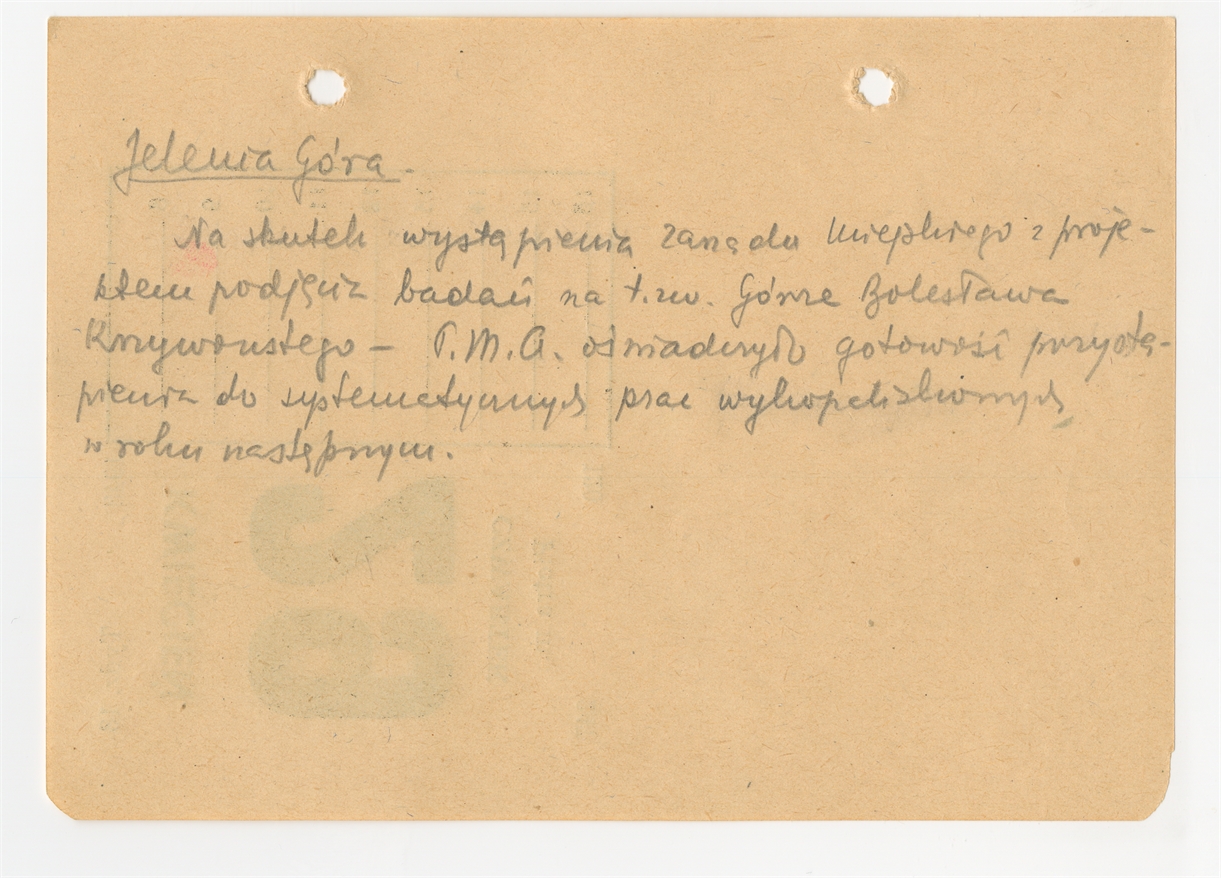 Jelenia Góra.
Na skutek wystąpienia Zarządu Miejskiego z proje-
ktem podjęcia badań na t.zw. Górze Bolesława
Krzywoustego – P.M.A. oświadczyło gotowość przystą-
pienia do systematycznych prac wykopaliskowych
w roku następnym.